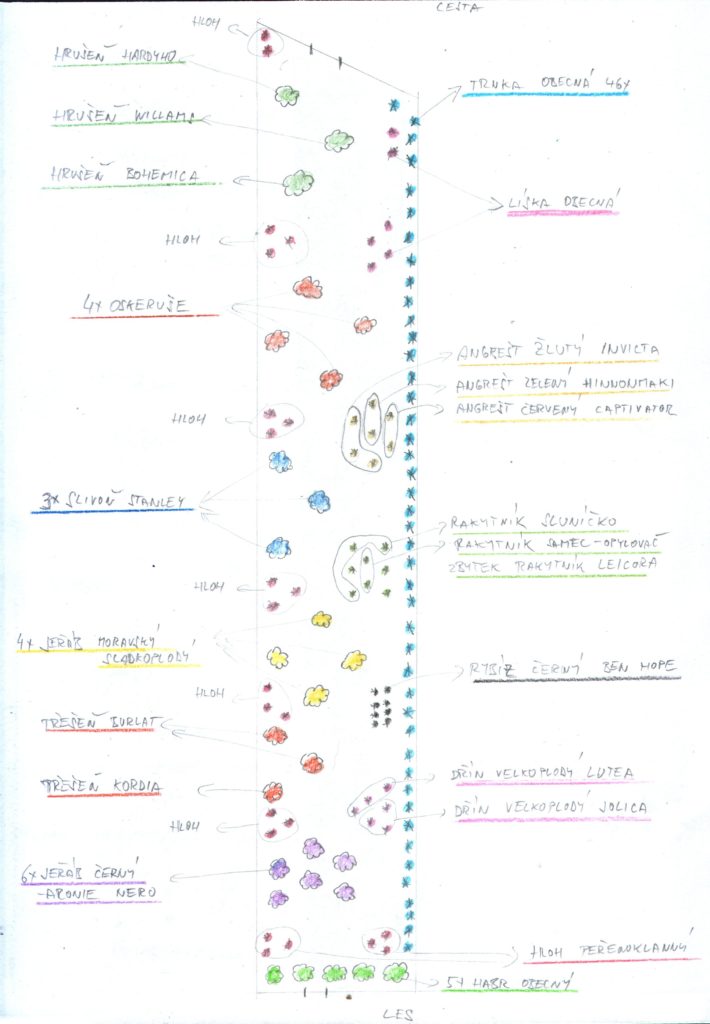 CESTA
HLOH
HRUŠEŇ HARDYHO
TRNKA OBECNÁ 46x
HRUŠEŇ WILLAMS
HRUŠEŇ BOHEMICA
LÍSKA OBECNÁ
HLOH
4x OSKERUŠE
ANGREŠT ŽLUTÝ INVICTA
ANGREŠT ZELENÝ HINNONMAKI
ANGREŠT ČERVENÝ CAPTIVATOR
HLOH
3x SLIVOŇ STANLEY
RAKYTNÍK SLUNÍČKO
RAKYTNÍK SAMEC-OPYLOVAČ
ZBYTEK RAKYTNÍK LEICORA
HLOH
4x JEŘÁB MORAVSKÝ
SLADKOPLODÝ
RYBÍZ ČERNÝ BEN HOPE
HLOH
TŘEŠEŇ BURLAT
DŘÍN VELKOPLODÝ LUTEA
TŘEŠEŇ KORDIA
DŘÍN VELKOPLODÝ JOLICA
HLOH
6x JEŘÁB ČERNÝ
-ARONIE NERO
HLOH PEŘENOKLANNÝ
5x HABR OBECNÝ
LES